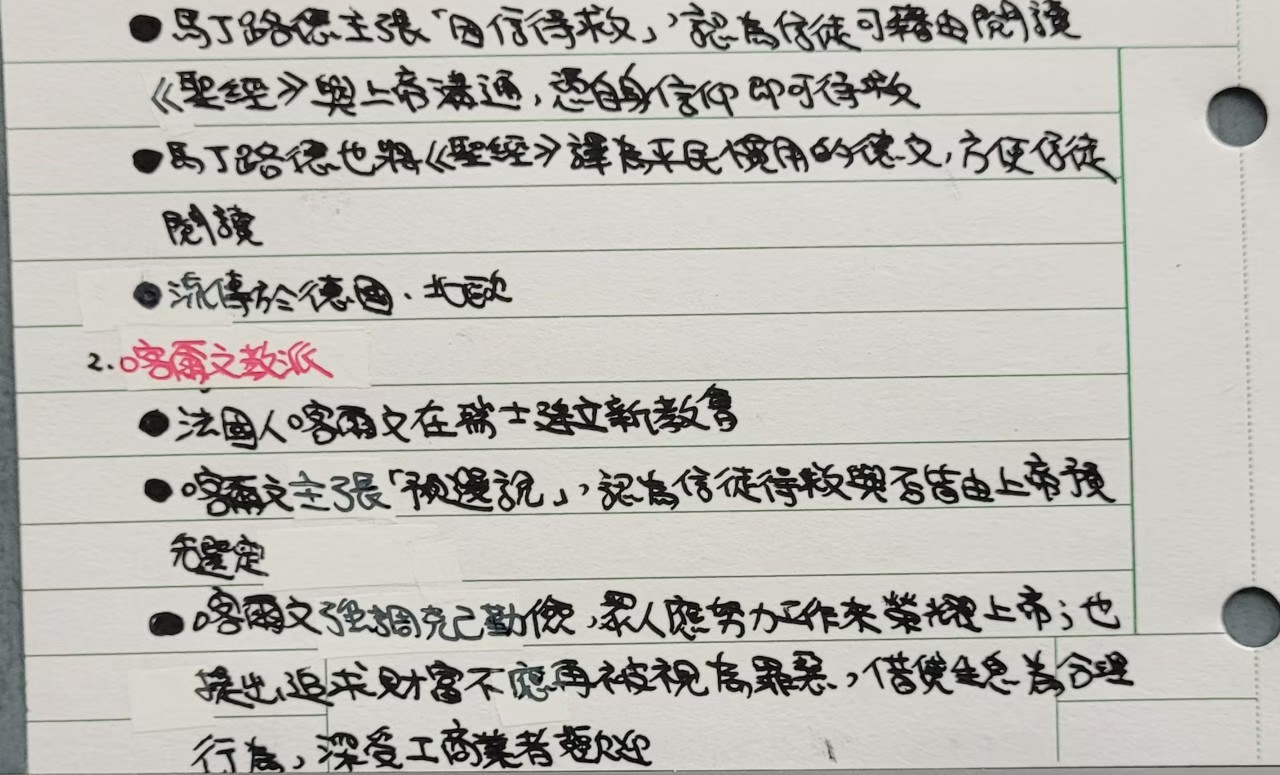 ●馬丁路德主張「因信得救」,認為信徒可藉由閱讀
《聖經》與上帝溝通,憑自身信仰即可得救
●馬丁路德也將《聖經》譯為平民慣用的德文,方便信徒
閱讀
●流傳於德國、北歐
2.喀爾文教派
●法國人喀爾文在瑞士建立新教會
●喀爾文主張「預選說」,認為信徒得救與否皆由上帝預
先選定
●喀爾文強調克己勤儉,眾人應努力工作來榮耀上帝;也
提出追求財富不應再被視為罪惡,借貸生息為合理
行為,深受工商業者歡迎